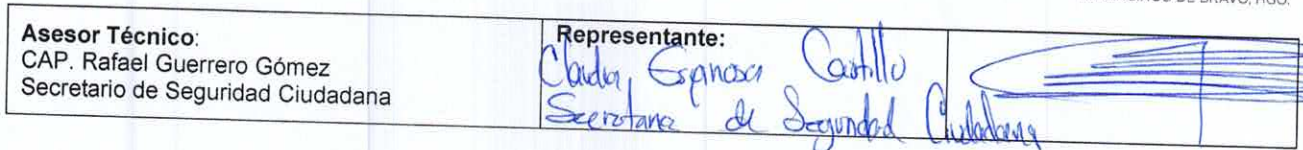 DE BRAVO, HGO.
Asesor Técnico:
CAP. Rafael Guerrero Gómez
Secretario de Seguridad Ciudadana
Representante:
Claudia Espinosa Castillo
Secretaria de Seguridad Ciudadana